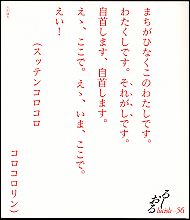 まちがひなくこのわたしです。
わたくしです。それがしです。
自首します、自首します。
えゝ、ここで。えゝ、いま、ここで。
えい！
（スッテンコロコロ
コロコロリン）
56